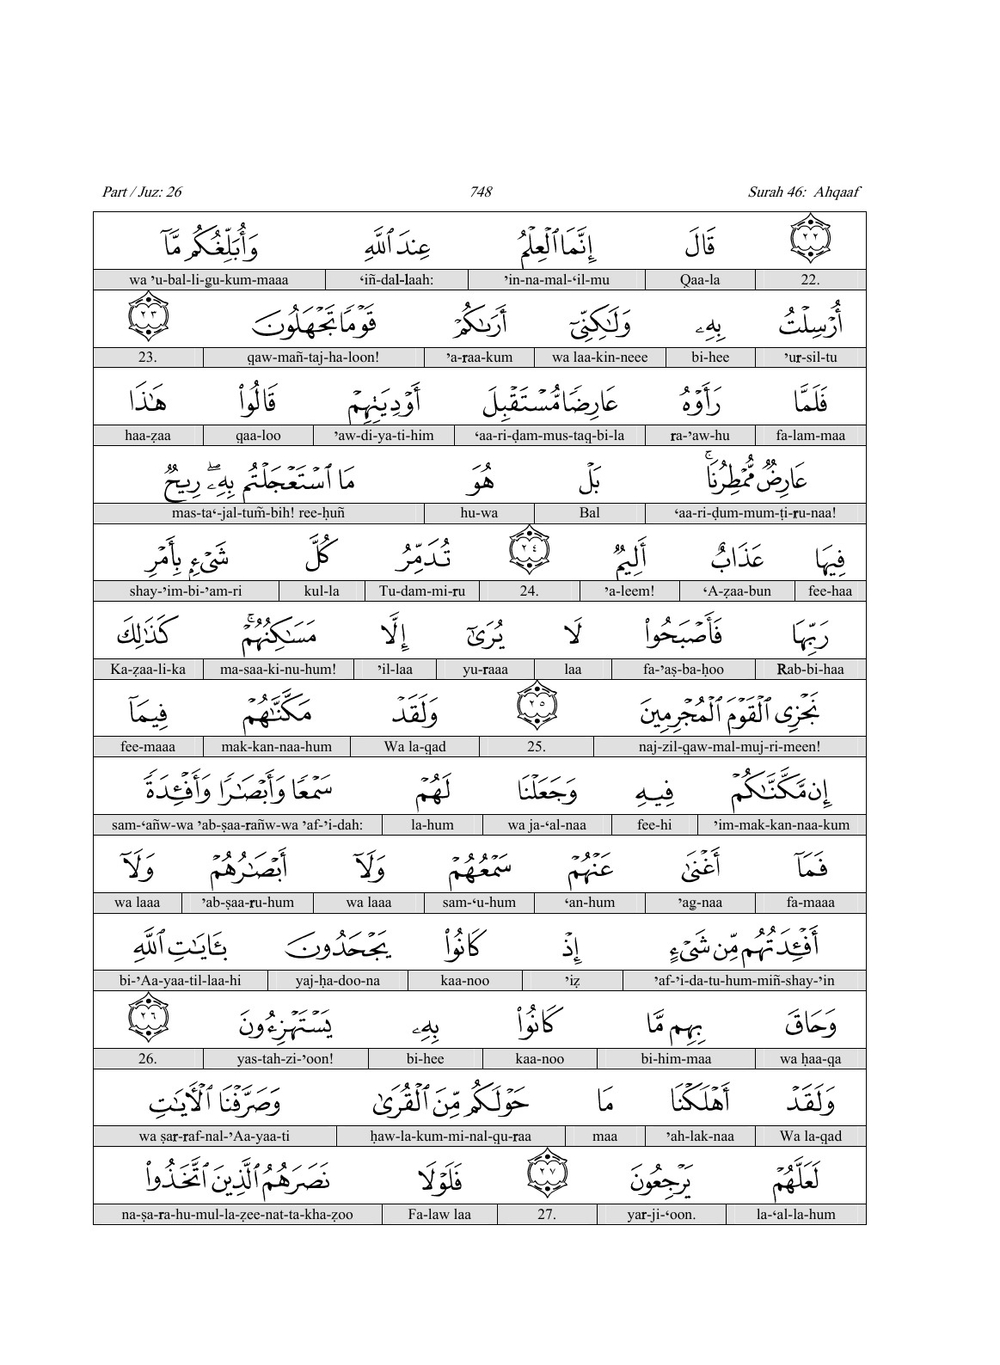 Part / Juz: 26 748 Surah 46: Ahqaaf
٢٢ قَالَ إِنَّمَا ٱلْعِلْمُ عِندَ ٱللَّهِ وَأُبَلِّغُكُم مَّآ
22. Qaa-la ’in-na-mal-‘il-mu ‘iñ-dal-laah: wa ’u-bal-li-gu-kum-maaa
أُرْسِلْتُ بِهِۦ وَلَـٰكِنِّىٓ أَرَىٰكُمْ قَوْمًا تَجْهَلُونَ ٢٣
’ur-sil-tu bi-hee wa laa-kin-neee ’a-raa-kum qaw-mañ-taj-ha-loon! 23.
فَلَمَّا رَأَوْهُ عَارِضًا مُّسْتَقْبِلَ أَوْدِيَتِهِمْ قَالُوا۟ هَـٰذَا
fa-lam-maa ra-’aw-hu ‘aa-ri-ḍam-mus-taq-bi-la ’aw-di-ya-ti-him qaa-loo haa-ẓaa
عَارِضٌ مُّمْطِرُنَا ۚ بَلْ هُوَ مَا ٱسْتَعْجَلْتُم بِهِۦ ۖ رِيحٌ
‘aa-ri-ḍum-mum-ṭi-ru-naa! Bal hu-wa mas-ta‘-jal-tum̃-bih! ree-ḥuñ
فِيهَا عَذَابٌ أَلِيمٌ ٢٤ تُدَمِّرُ كُلَّ شَىْءٍۭ بِأَمْرِ
fee-haa ‘A-ẓaa-bun ’a-leem! 24. Tu-dam-mi-ru kul-la shay-’im-bi-’am-ri
رَبِّهَا فَأَصْبَحُوا۟ لَا يُرَىٰٓ إِلَّا مَسَـٰكِنُهُمْ ۚ كَذَٰلِكَ
Rab-bi-haa fa-’aṣ-ba-ḥoo laa yu-raaa ’il-laa ma-saa-ki-nu-hum! Ka-ẓaa-li-ka
نَجْزِى ٱلْقَوْمَ ٱلْمُجْرِمِينَ ٢٥ وَلَقَدْ مَكَّنَّـٰهُمْ فِيمَآ
naj-zil-qaw-mal-muj-ri-meen! 25. Wa la-qad mak-kan-naa-hum fee-maaa
إِن مَّكَّنَّـٰكُمْ فِيهِ وَجَعَلْنَا لَهُمْ سَمْعًا وَأَبْصَـٰرًا وَأَفْـِٔدَةً
’im-mak-kan-naa-kum fee-hi wa ja-‘al-naa la-hum sam-‘añw-wa ’ab-ṣaa-rañw-wa ’af-’i-dah:
فَمَآ أَغْنَىٰ عَنْهُمْ سَمْعُهُمْ وَلَآ أَبْصَـٰرُهُمْ وَلَآ
fa-maaa ’ag-naa ‘an-hum sam-‘u-hum wa laaa ’ab-ṣaa-ru-hum wa laaa
أَفْـِٔدَتُهُم مِّن شَىْءٍ إِذْ كَانُوا۟ يَجْحَدُونَ بِـَٔايَـٰتِ ٱللَّهِ
’af-’i-da-tu-hum-miñ-shay-’in ’iẓ kaa-noo yaj-ḥa-doo-na bi-’Aa-yaa-til-laa-hi
وَحَاقَ بِهِم مَّا كَانُوا۟ بِهِۦ يَسْتَهْزِءُونَ ٢٦
wa ḥaa-qa bi-him-maa kaa-noo bi-hee yas-tah-zi-’oon! 26.
وَلَقَدْ أَهْلَكْنَا مَا حَوْلَكُم مِّنَ ٱلْقُرَىٰ وَصَرَّفْنَا ٱلْـَٔايَـٰتِ
Wa la-qad ’ah-lak-naa maa ḥaw-la-kum-mi-nal-qu-raa wa ṣar-raf-nal-’Aa-yaa-ti
لَعَلَّهُمْ يَرْجِعُونَ ٢٧ فَلَوْلَا نَصَرَهُمُ ٱلَّذِينَ ٱتَّخَذُوا۟
la-‘al-la-hum yar-ji-‘oon. 27. Fa-law laa na-ṣa-ra-hu-mul-la-ẓee-nat-ta-kha-ẓoo